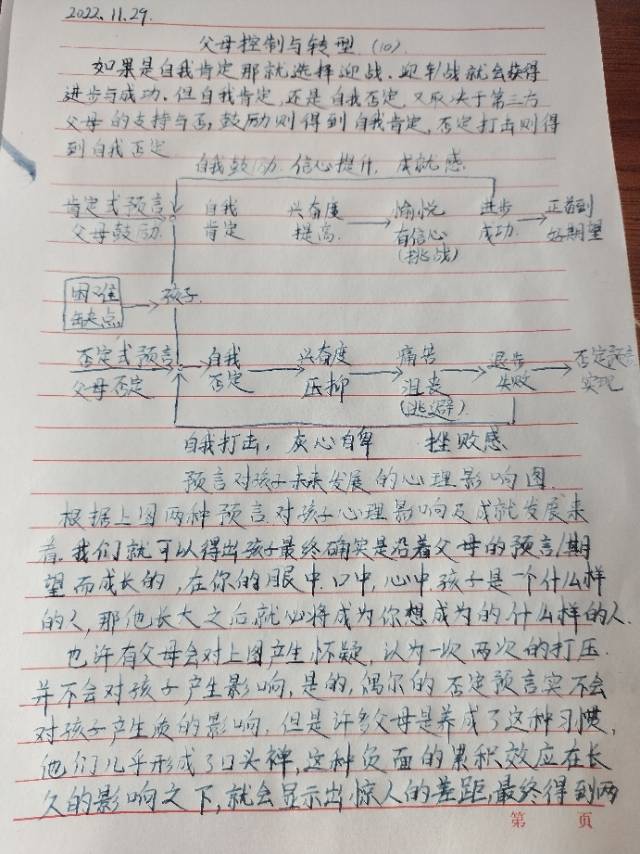 2022.11.29.
父母控制与转型 (10)
如果是自我肯定那就选择迎战. 迎战就会获得
进步与成功. 但自我肯定, 还是自我否定, 又取决于第三方
父母的支持与否, 鼓励则得到自我肯定, 否定打击则得
到自我否定
自我鼓励. 信心提升, 成就感
肯定式预言 自我 兴奋度 愉悦 进步 正着到
父母鼓励. 肯定 提高. 有信心 成功 好期望
(挑战)
困难
缺点 孩子
否定式预言 自我 兴奋度 痛苦 退步 否定预言
父母否定 否定 压抑 沮丧 失败 实现
(逃避)
自我打击, 灰心自卑 挫败感
预言对孩子未来发展的心理影响图.
根据上图两种预言对孩子心理影响及成就发展来
看. 我们就可以得出孩子最终确实是沿着父母的预言/期
望而成长的, 在你的眼中. 口中, 心中孩子是一个什么样
的人, 那他长大之后就必将成为你想成为的什么样的人.
也许有父母会对上图产生怀疑, 认为一次两次的打压.
并不会对孩子产生影响, 是的, 偶尔的否定预言实不会
对孩子产生质的影响, 但是许多父母是养成了这种习惯,
他们几乎形成了口头禅, 这种负面的累积效应在长
久的影响之下, 就会显示出惊人的差距, 最终得到两
第 页